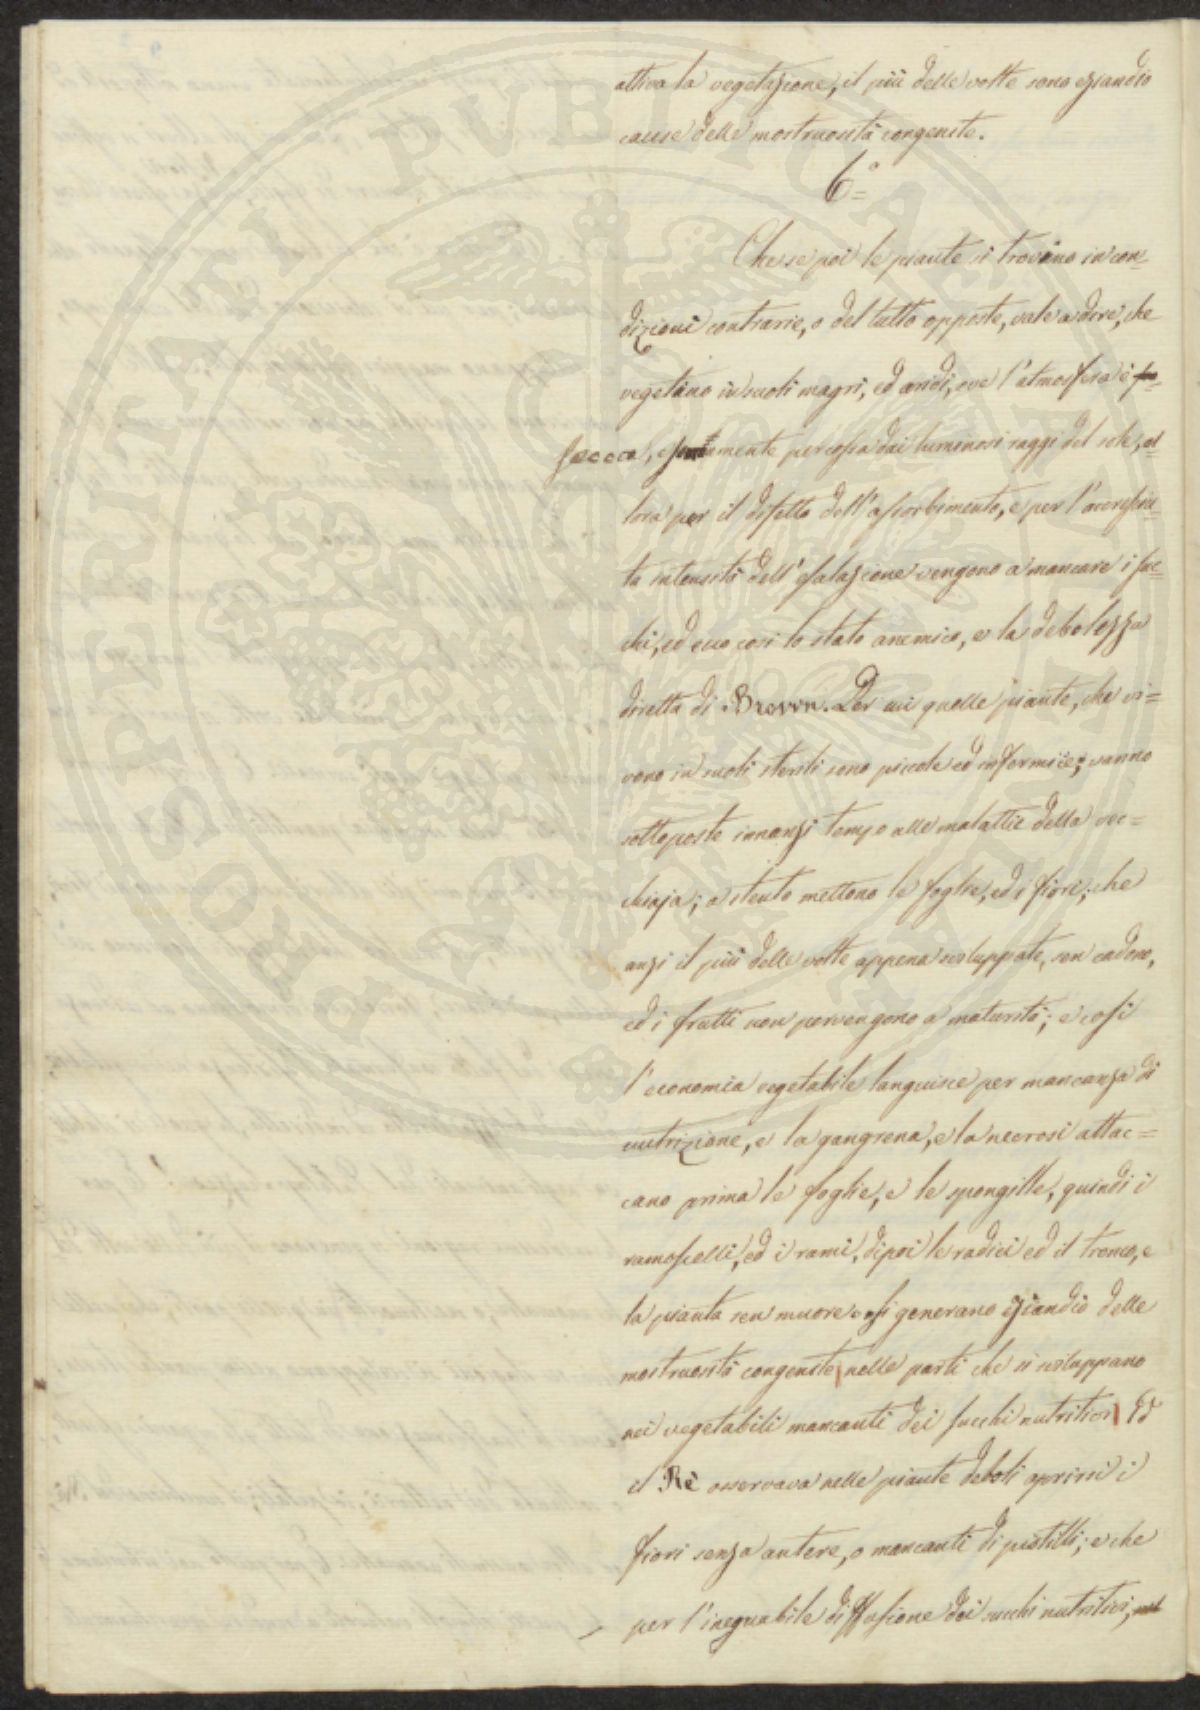 attiva la vegetazione, il più delle volte sono eziandio
cause delle mostruosità congenite.
6°
Che se poi le piante si trovino in con-
dizioni contrarie, o del tutto opposte, vale a dire, che
vegetano in suoli magri, ed aridi, ove l'atmosfera è
secca, e percossa dai luminosi raggi del sole, al
lora per il difetto dell'assorbimento, e per l'accresciu-
ta intensità dell'esalazione vengono a mancare i suc-
chi, ed ecco così lo stato anemico, e la debolezza
diretta di Brown. Per cui quelle piante, che vi=
vono in suoli sterili sono piccole ed infermicie; vanno
sottoposte innanzi tempo alle malattie della vec=
chiaja; a stento mettono le foglie, ed i fiori; che
anzi il più delle volte appena sviluppate, sen cadono,
ed i frutti non pervengono a maturità; e così
l'economia vegetabile languisce per mancanza di
nutrizione, e la gangrena, e la necrosi attac=
cano prima le foglie, e le spongille, quindi i
ramoscelli, ed i rami, dipoi le radici ed il tronco, e
la pianta sen muore si generano eziandio delle
mostruosità congenite nelle parti che si sviluppano
nei vegetabili mancanti dei succhi nutritivi Ed
il Re osservava nelle piante deboli aprirsi i
fiori senza antere, o mancanti di pistilli; e che
per l'ineguabile diffusione dei succhi nutritivi,
PROSPERITATI PVBLICAE AVGENDAE